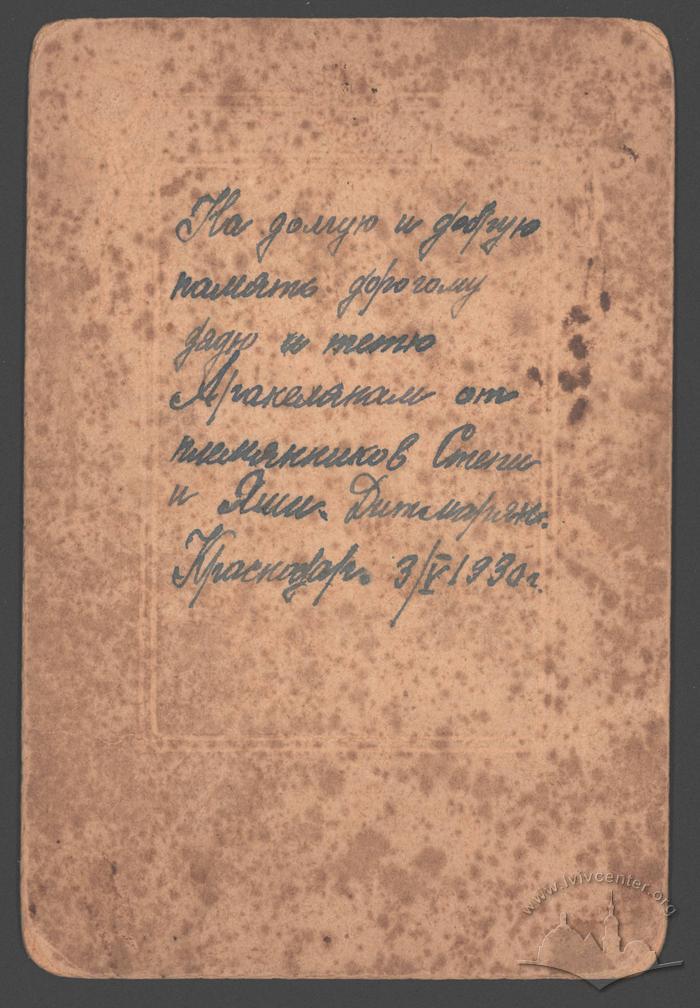 На долгую и добрую
память дорогому
дядю и тетю
Аракелянам от
племянников Степы
и Яши. Дитмарян.
Краснодар. 3/V 1930 г.
www.lvivcenter.org